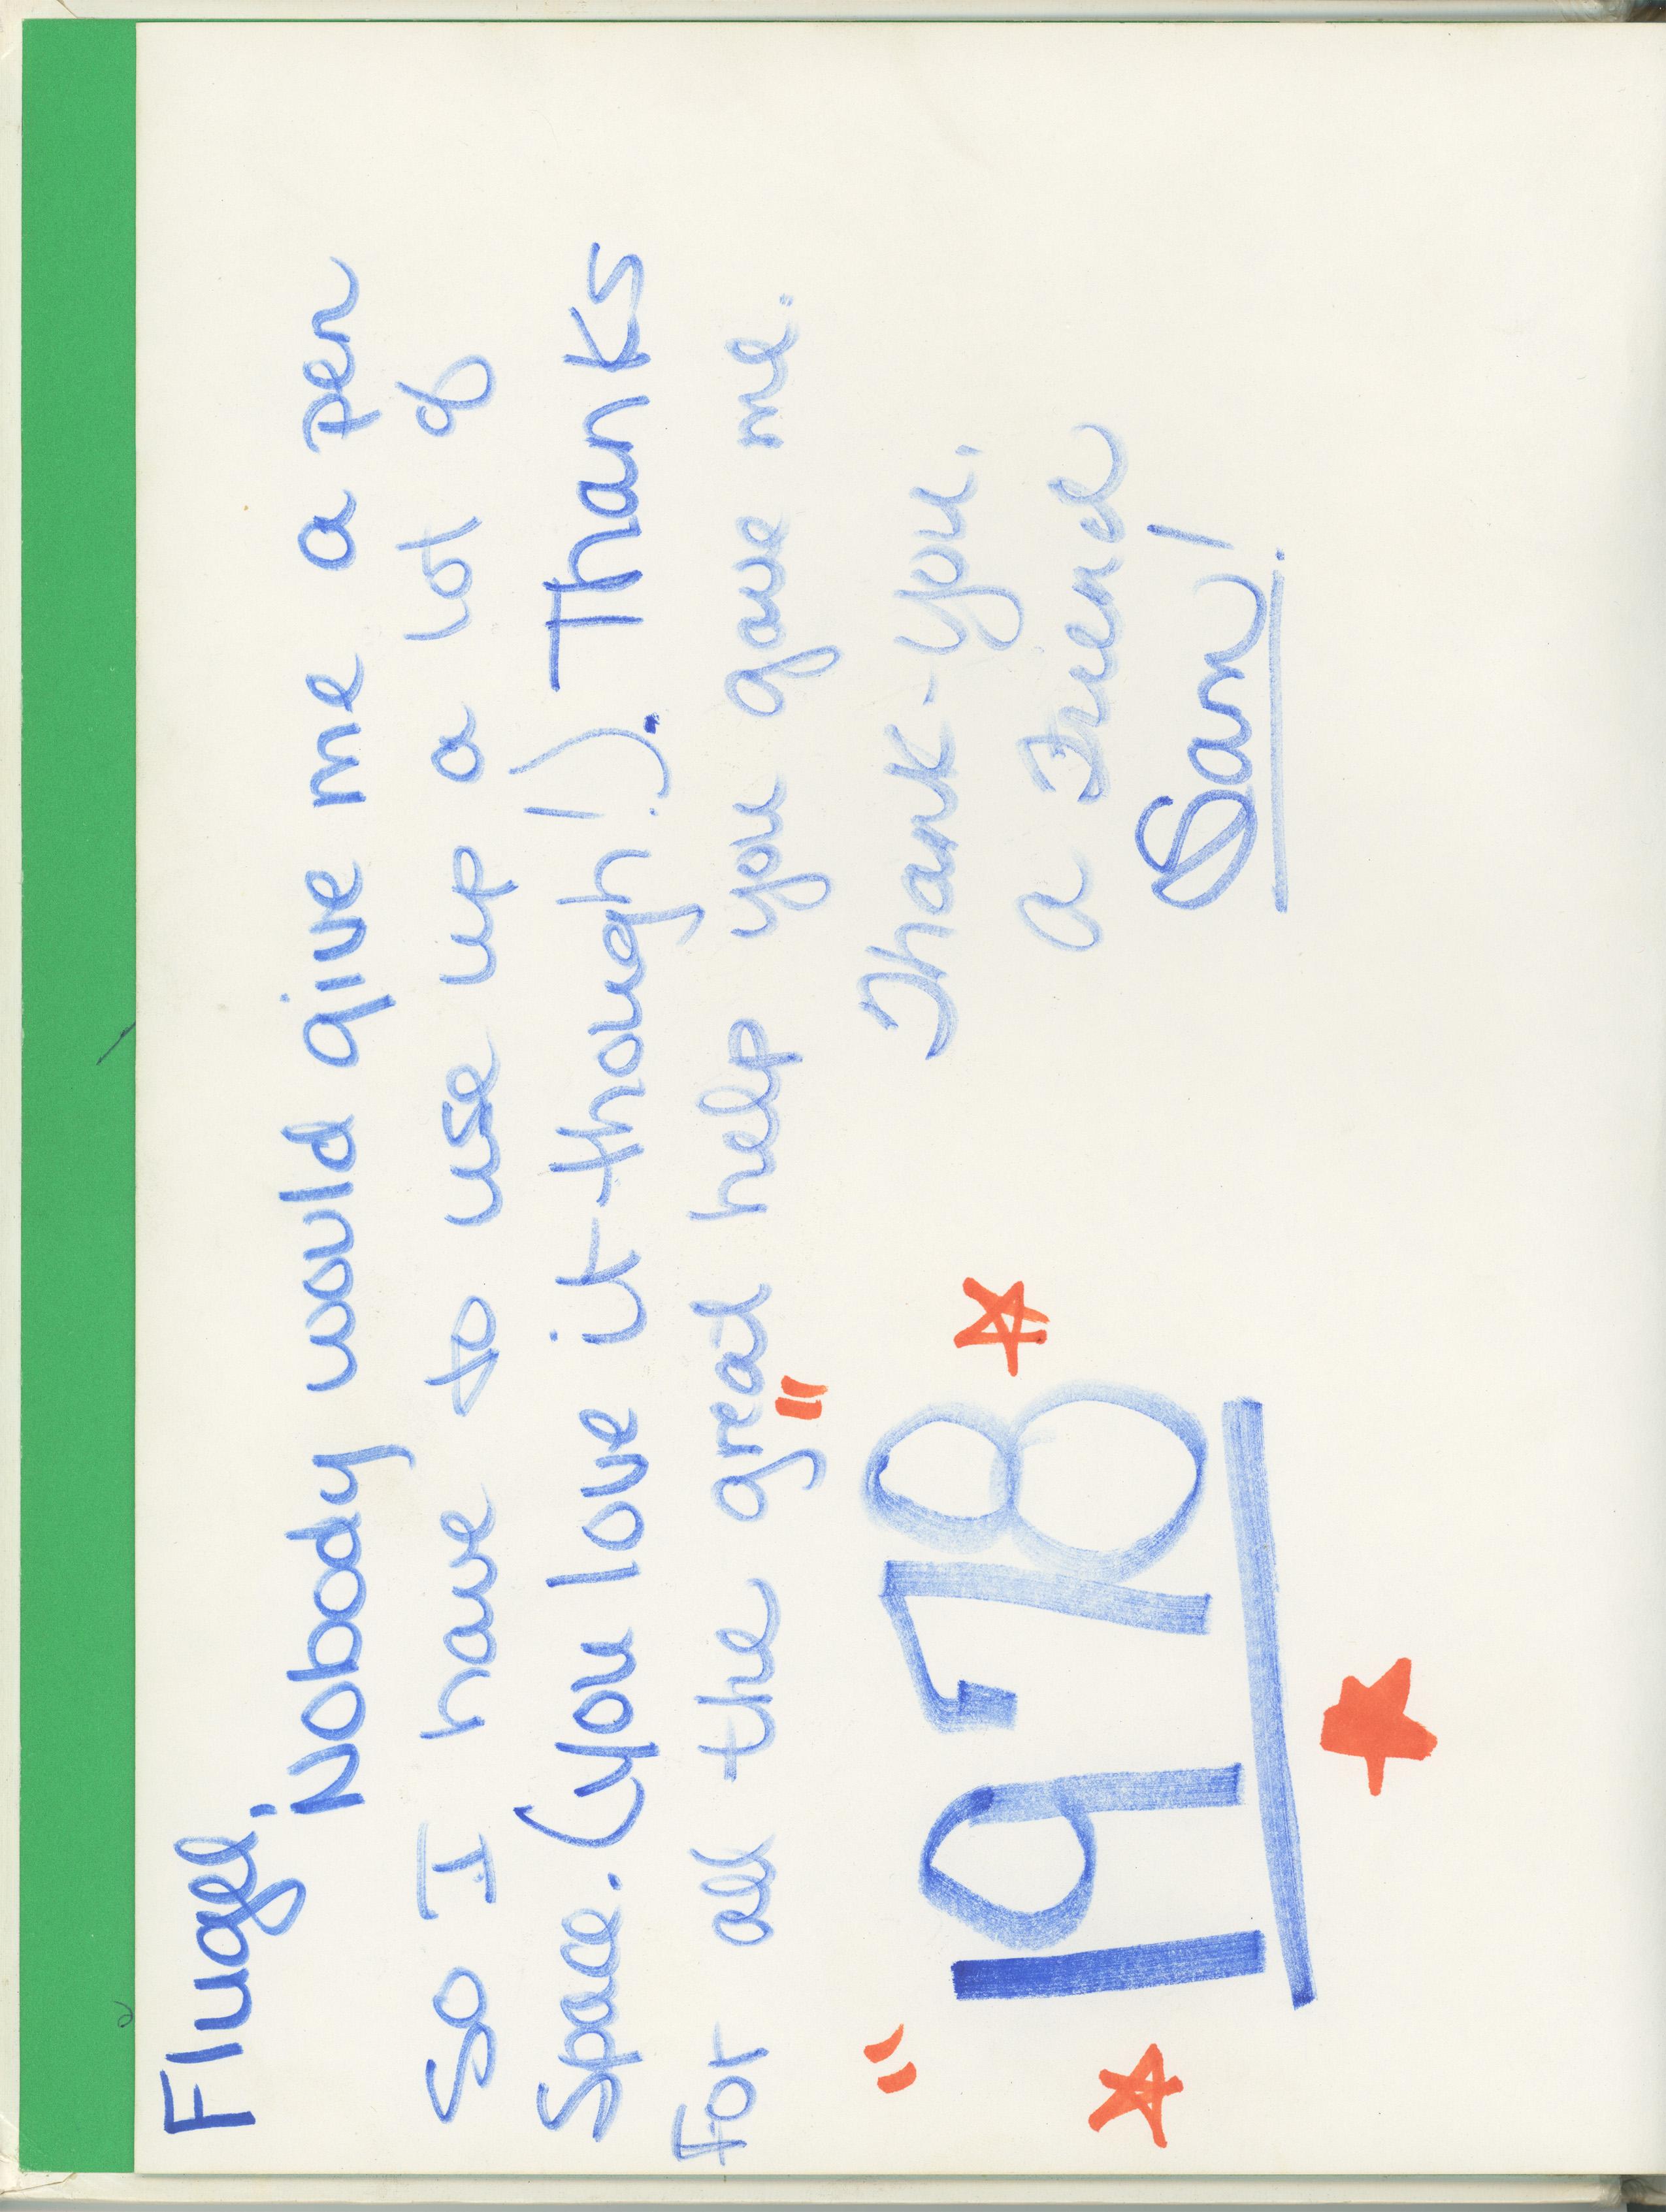 Flugel,
Nobody would give me a pen
so I have to use up a lot of
Space. (you love it-though!). Thanks
For all the great help you gave me.
Thank-you.
a Friend
Sam!
"1978"